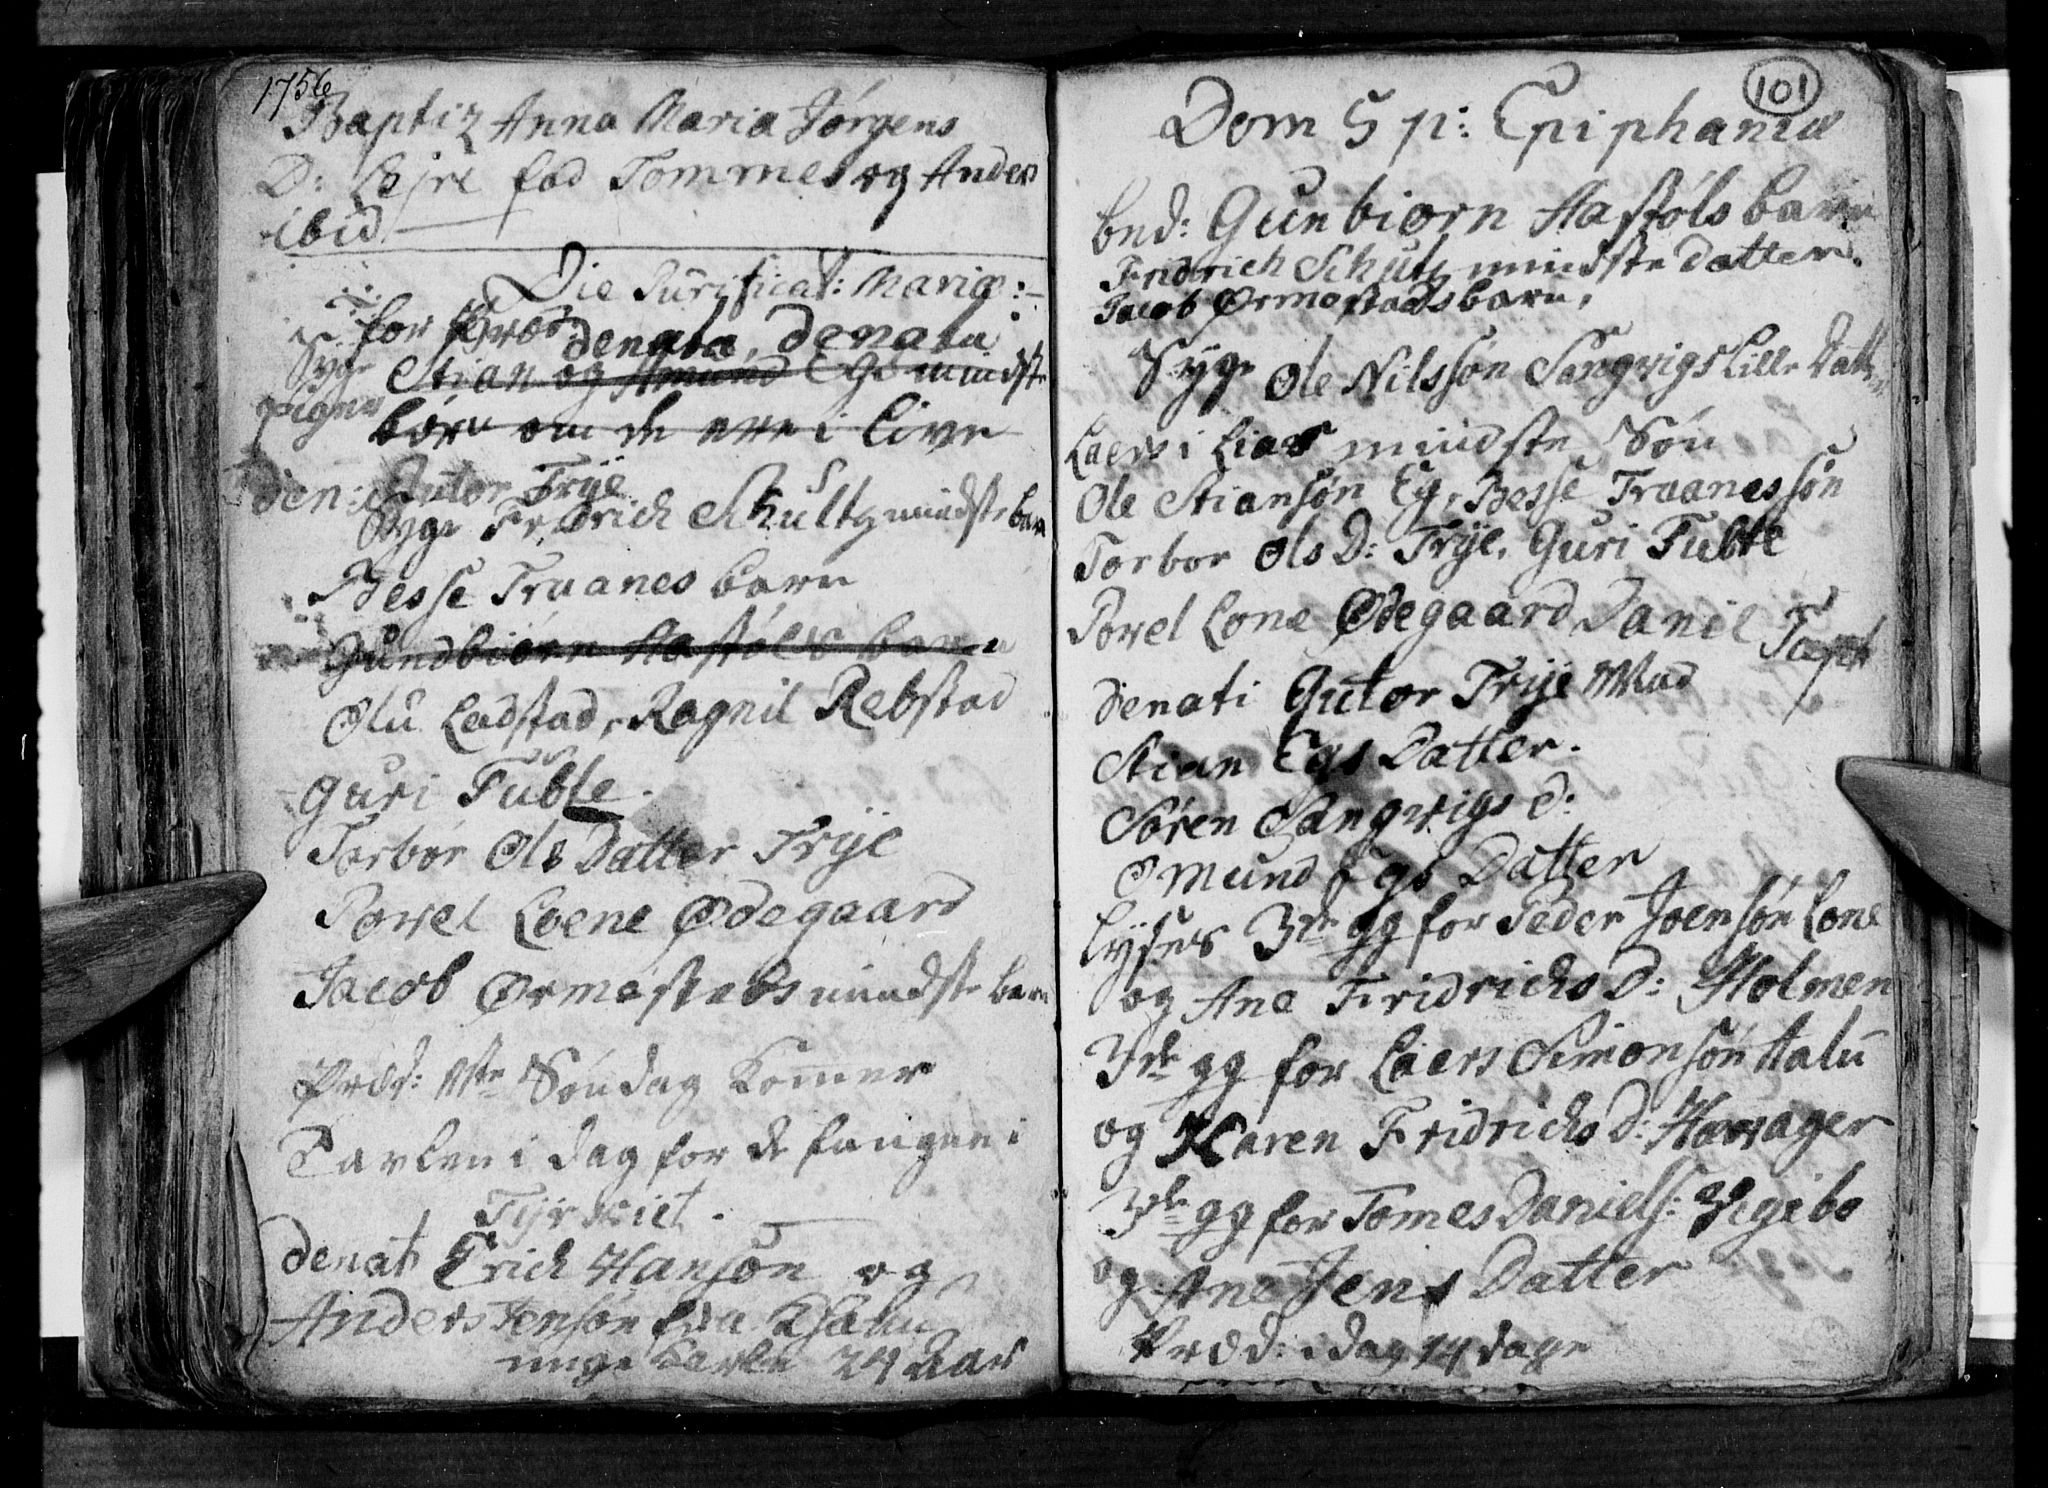 1756
Baptiz Anna Maria Jørgens
D: Lejre fad Tommes og Anders
ibid
Die Purificat: Mariæ:
for
denata, denatu
Syge Stian og Amund Egs mindste
Pigen
børn om de ere i Live
den: Gutor Trije
Syge Fridrich Schultz mindste barn
Besse Traanes barn
Gundbiørn Hastøls barn
Olu Ladstad, Ragnil Rebstad
Guri Tubte.
Torbor Ols Datter Trije
Povel Loene Ødegaard
Jacob Ørmestads mindste barn
Præd: Søndag Kommer
Tavlen i dag for de fangne i
Tyrkiet.
denati Erich Hansøn og
Anders Jensøn fra
unge Karle 24 Aar
101
Dom 5 p: Epiphaniæ
bed: Gunbiørn Hastøls barn
Fridrich Schultz mindste datter.
Jacob Ørmestads barn,
Syge Ole Nilssøn Sangvigs Lille Datter
Laers i Lias mindste Søn
Ole Stiansøn Eg, Besse Traanes søn
Torbor Ols D: Trije, Guri Tubte
Povel Lone Ødegaard Danil
Denati Gutor Trije
Stian Egs Datter.
Søren Sangvigs D:
Omund Egs Datter
Lyses 3de gg for Peder Joensøn Lone
og Ane Fridrichs D: Holmen
3de gg for Laers Simonsøn Halu
og Karen Fridrichs D:
3de gg for Tomes Daniels: Vigibo
og Ane Jens Datter
Præd: i dag 14 dage